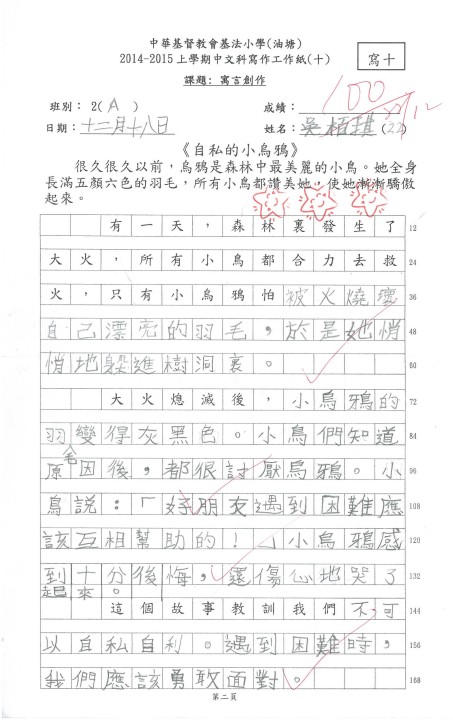 中華基督教會基法小學(油塘)
2014-2015上學期中文科寫作工作紙(十)
寫十
課題: 寓言創作
班別: 2( A )
成績: 100
日期: 十二月十八日
姓名: 吳栢琪(22)
《自私的小烏鴉》
很久很久以前,烏鴉是森林中最美麗的小鳥。她全身
長滿五顏六色的羽毛,所有小鳥都讚美她,使她漸漸驕傲
起來。
有一天,森林裏發生了 12
大火,所有小鳥都合力去救 24
火,只有小烏鴉怕被火燒壞 36
自己漂亮的羽毛,於是她悄 48
悄地躲進樹洞裏。 60
大火熄滅後,小烏鴉的 72
羽毛變得灰黑色。小鳥們知道 84
原因後,都很討厭烏鴉。小 96
鳥說:「好朋友遇到困難應 108
該互相幫助的!」小烏鴉感 120
到十分後悔,還傷心地哭了 132
起來。
這個故事教訓我們不可 144
以自私自利。遇到困難時, 156
我們應該勇敢面對。 168
第二頁